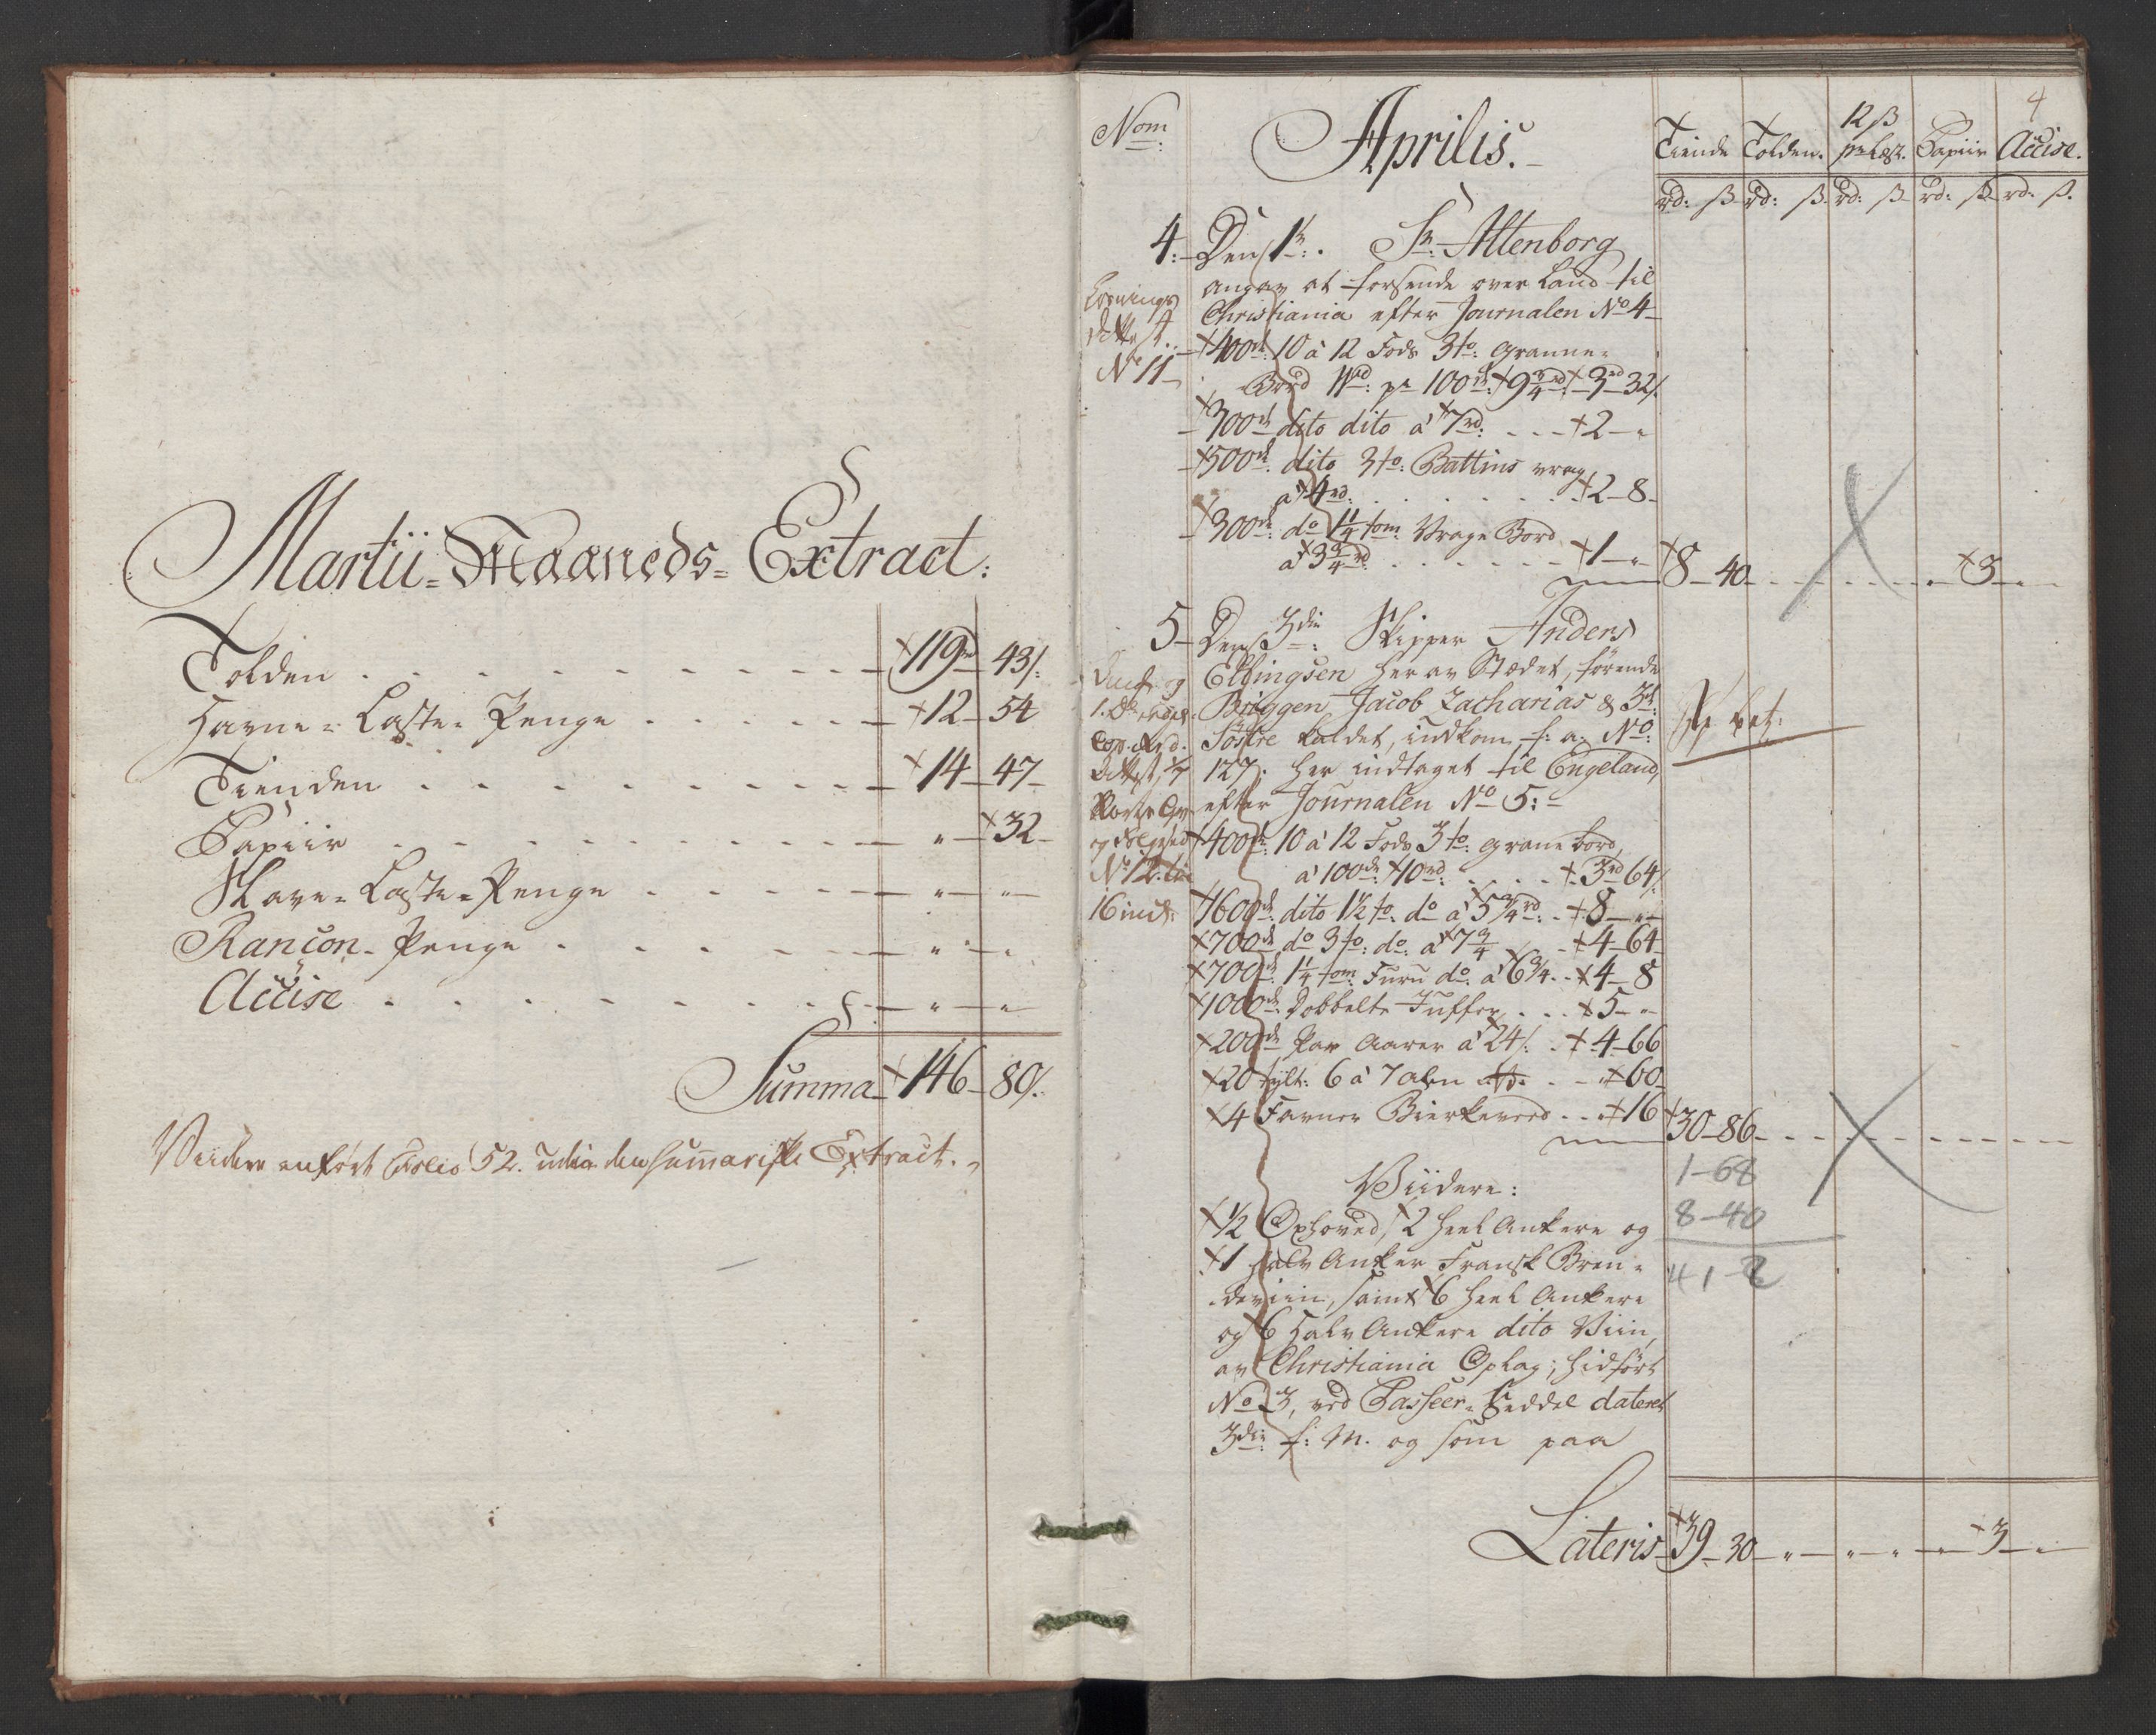 Martii = Maaneds = Extract:
Tolden . . . . . . . . . +119rd 43/:
Havne = Laste = Penge . . . . . +12 - 54
Tienden . . . . . . . . . +14 - 47 -
Papiir . . . . . . . . . " - +32 -
Slave = Laste = Penge . . . . . " - "
Rançon = Penge . . . . . . " - "
Accise . . . . . . . . . " - "
Summa +146 - 80/:
Viidere anført Folio 52. udi den summariske Extract.
4
Nom: Aprilis. Tiende Tolden. 12 ß pr Læst. Papiir Accise.
rd: ß rd: ß. rd: ß rd: ß rd: ß.
4. Den 1te: Sr. Altenborg
angav at forsende over Land til
Christiania efter Journalen No 4
No 11
+400de 10 à 12 Fods 3to: Granne =
Bord pr 100de +9 3/4rd +3rd 32/:
+300de dito dito à +7rd: . . . +2 - "
+500de dito 3to: Battins vrag
à +4rd: . . . . . . +2 - 8 -
+300de do 1 1/4 tom: Vrage Bord
à +3 3/4rd . . . . . . +1 - " - +8 - 40 - - - - +3 - "
5 - Den 3die: Skipper Anders
Ellingsen her av Stædet, førende
Briggen Jacob Zacharias & 3de:
Søstre kaldet, indkom f: a: No:
127. her indtaget til Engeland,
efter Journalen No 5:
No 12 til
16 incl:
+400de: 10 à 12 Fods 3to: grane bord,
à 100de +10rd: . . . . +3rd 64/:
+1600de: dito 1 1/2 to: do à +5 3/4rd: - +8 - " -
+700de do 3to: do: à +7 3/4 . . +4 - 64
+700de: 1 1/4 tom: Furu do: à +6 3/4 . . +4 - 8
+1000de Dobbelte Juffer . . . +5 - "
+200de Par Aarer à +24/: . +4 - 66
+20 tylt: 6 à 7 alen . . - " +60 -
+4 Favner Birkeveed . . " +16 +30 - 86 - - - - -
1 - 68
8 - 40
41 - 2
Viidere:
+1/2 Oxhoved, +2 heel Ankere og
+1 halv Anker Fransk Bren =
deviin, samt +6 heel Ankere
og +6 halv Ankere dito Viin,
av Christiania Oplag; hidført
No 3, ved Passeer = Seddel dateret
3die f: M. og som paa
Lateris +39 - 30 - " - " - " - +3 - "